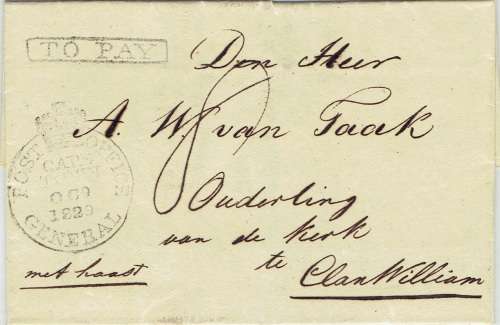 TO PAY
Den Heer
A. W. van Taak
8
Ouderling
van de Kerk
te
ClanWilliam
met haast
POST OFFICE
GENERAL
OC 9
1829